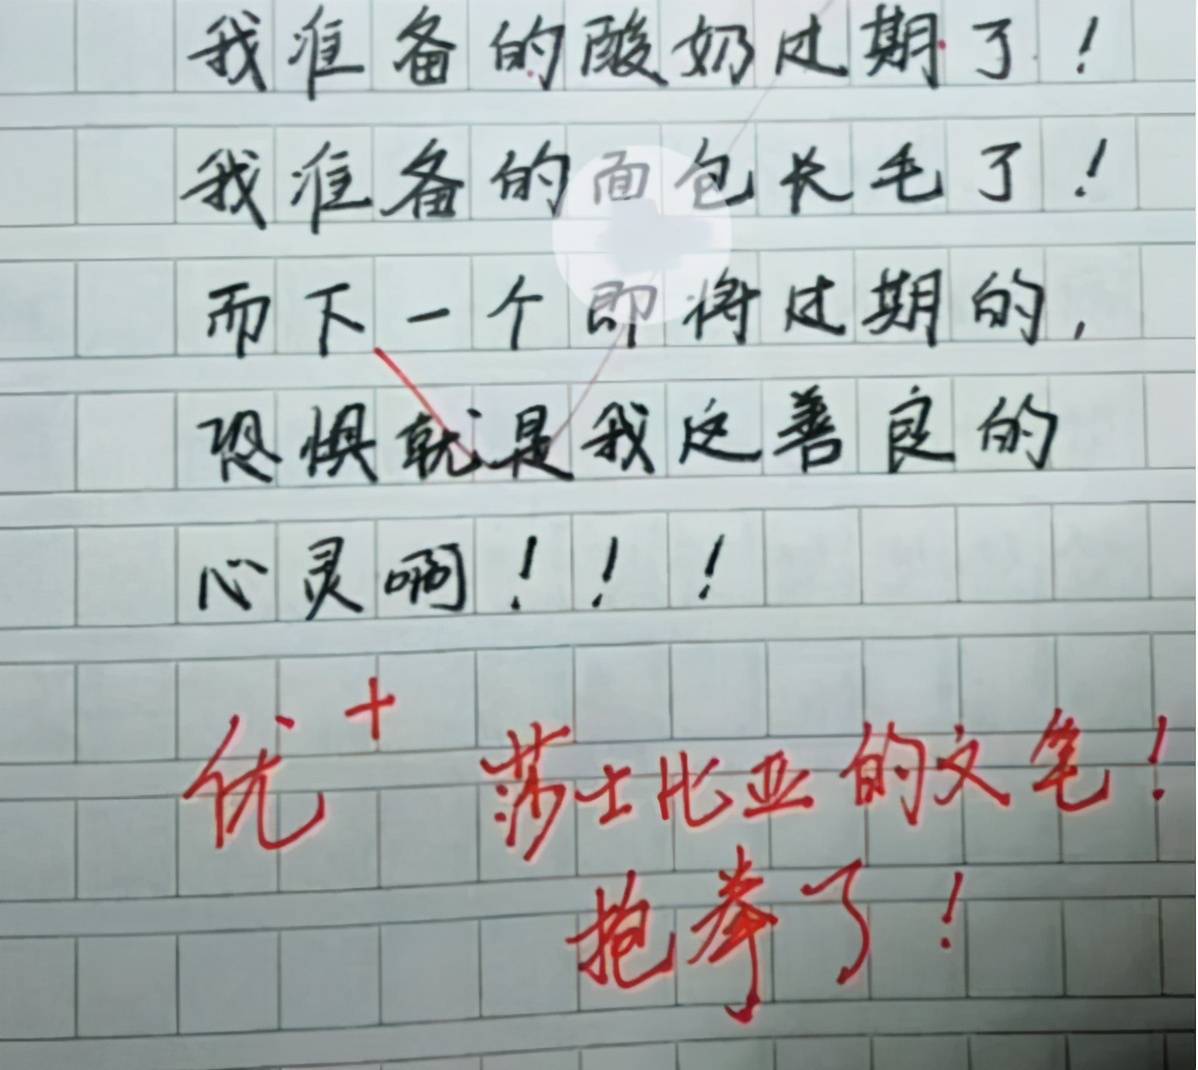 我准备的酸奶过期了！
我准备的面包长毛了！
而下一个即将过期的，
恐惧就是我这善良的
心灵啊！！！
优+
莎士比亚的文笔！
抱拳了！